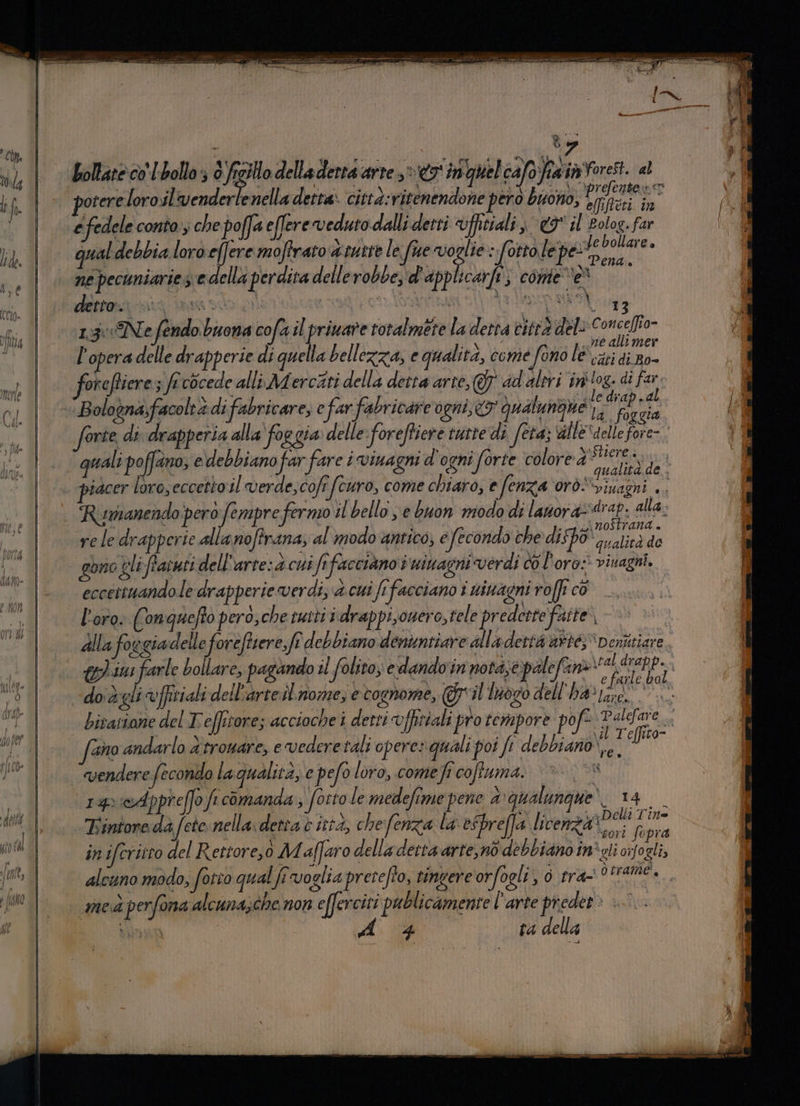 7
bollate co'l bollo, ò sigillo della detta arte, &amp; in quel caso sia in
potere loro il venderle nella detta città: ritenendone però buono,
e fedele conto, che possa essere veduto dalli detti vffitiali, &amp; il
qual debbia loro essere mostrato à tutte le sue voglie: sotto le pe-
ne pecuniarie, e della perdita delle robbe, d'applicarsi, come è
detto.
13 Ne sendo buona cosa il priuare totalmẽte la detta città del-
l'opera delle drapperie di quella bellezza, e qualità, come sono le
forestiere; si cõcede alli Mercãti della detta arte, &amp; ad altri in
Bologna, facoltà di fabricare, e far fabricare ogni, &amp; qualunque
sorte di drapperia alla foggia delle forestiere tutte di seta; alle
quali possano, e debbiano far fare i viuagni d'ogni sorte colore à
piacer loro, eccetto il verde, cosi scuro, come chiaro, e senza oro.
Rimanendo però sempre fermo il bello, e buon modo di lauora-
re le drapperie alla nostrana, al modo antico, e secondo che dispõ-
gono gli statuti dell'arte: à cui si facciano i uiuagni verdi cõ l'oro:
eccettuandole drapperie verdi, à cui si facciano i uiuagni rossi cõ
l'oro. Con questo però, che tutti i drappi, ouero, tele predette fatte
alla foggia delle forestiere, si debbiano denuntiare alla detta arte,
&amp; iui farle bollare, pagando il solito, e dando in nota, e palesan-
do à gli vffitiali dell'arte il nome, e cognome, &amp; il luogo dell'ha-
bitatione del Tessitore; accioche i detti vffitiali pro tempore pos-
sano andarlo à trouare, e vedere tali opere: quali poi si debbiano
vendere secondo la qualità, e peso loro, come si costuma.
14 Appresso si comanda, sotto le medesime pene à qualunque
Tintore da sete nella detta città, che senza la espressa licenza
in iscritto del Rettore, ò Massaro della detta arte, nõ debbiano in
alcuno modo, sotto qual si voglia pretesto, tingere orsogli, ò tra-
me à persona alcuna, che non esserciti publicamente l'arte predet
A 4
ta della
forest. al
presente
effisteti in
Bolog. far
le bollare.
Pena.
13
Concessio-
ne alli mer
cãti di Bo-
log. di far
le drap. al
la foggia
delle fore-
stiere.
qualità de
viuagni.
drap. alla
nostrana.
qualità de
viuagni.
Denũtiare
tal drapp.
e farle bol
lare.
Palesare
il Tessito-
re.
14
Delli Tin-
tori sopra
gli orsogli,
ò trame.